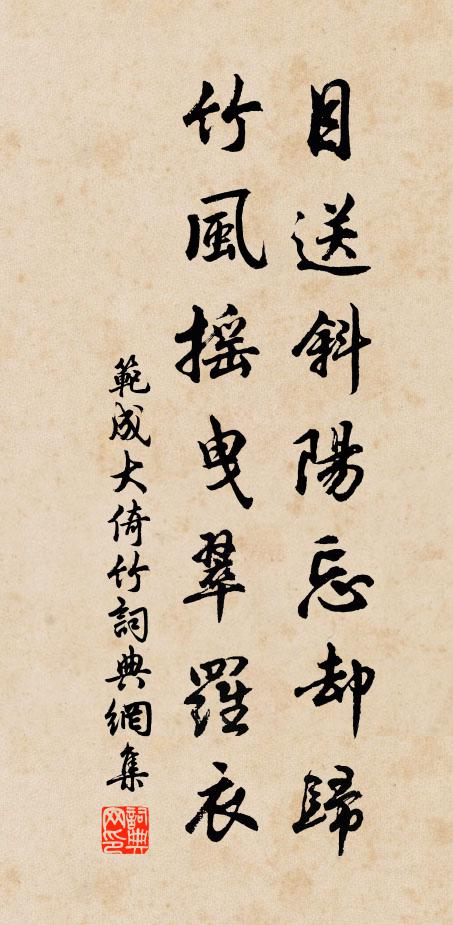 目送斜陽忘却歸
竹風搖曳翠羅衣
範成大倚竹詞典網集
詞典网印